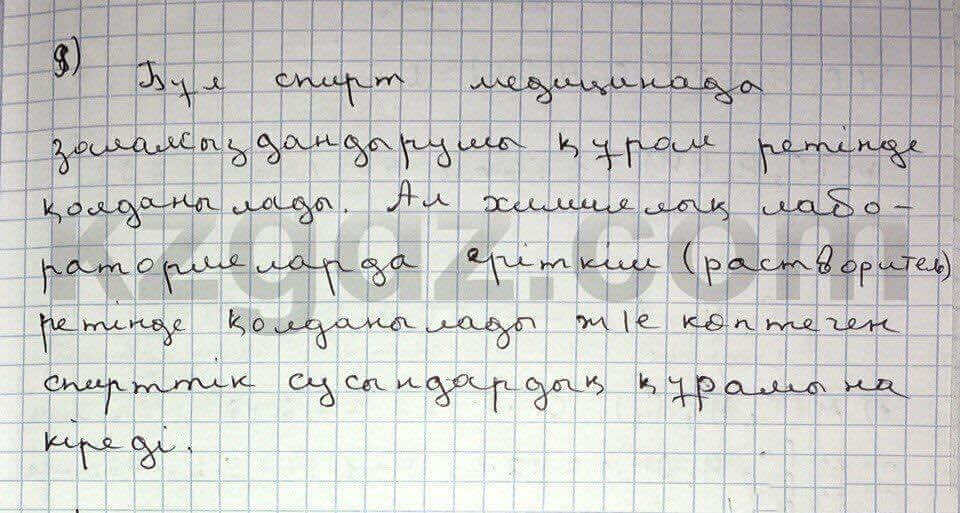 9)
Бұл спирт медицинада
залалсыздандырушы құрал ретінде
қолданылады. Ал химиялық лабо-
раторияларда еріткіш (растворитель)
ретінде қолданылады ж/е көптеген
спирттік сусындардың құрамына
кіреді.
kzgdz.com